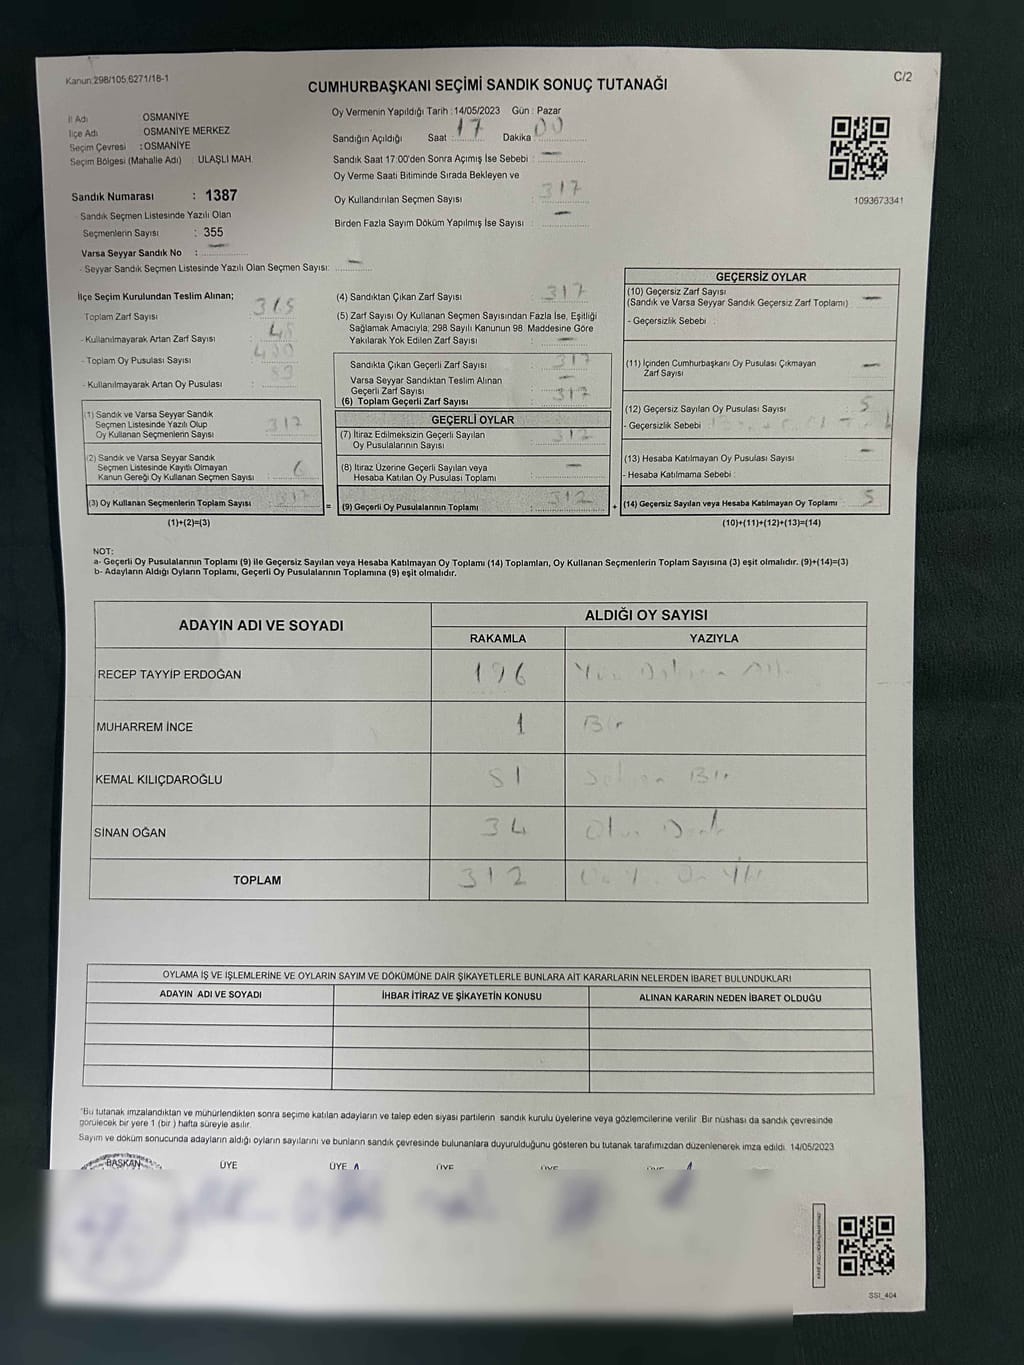 Kanun:298/105,6271/18-1
C/2
CUMHURBAŞKANI SEÇİMİ SANDIK SONUÇ TUTANAĞI
İl Adı OSMANİYE
İlçe Adı OSMANİYE MERKEZ
Seçim Çevresi : OSMANİYE
Seçim Bölgesi (Mahalle Adı) : ULAŞLI MAH.
Sandık Numarası : 1387
- Sandık Seçmen Listesinde Yazılı Olan
Seçmenlerin Sayısı : 355
Varsa Seyyar Sandık No : —
- Seyyar Sandık Seçmen Listesinde Yazılı Olan Seçmen Sayısı: —
Oy Vermenin Yapıldığı Tarih : 14/05/2023 Gün : Pazar
Sandığın Açıldığı Saat : 17 Dakika : 00
Sandık Saat 17:00'den Sonra Açımış İse Sebebi : —
Oy Verme Saati Bitiminde Sırada Bekleyen ve
Oy Kullandırılan Seçmen Sayısı : 317
Birden Fazla Sayım Döküm Yapılmış İse Sayısı : —
1093673341
İlçe Seçim Kurulundan Teslim Alınan;
- Toplam Zarf Sayısı : 365
- Kullanılmayarak Artan Zarf Sayısı :
- Toplam Oy Pusulası Sayısı : 400
- Kullanılmayarak Artan Oy Pusulası : 83
(1) Sandık ve Varsa Seyyar Sandık
Seçmen Listesinde Yazılı Olup
Oy Kullanan Seçmenlerin Sayısı : 317
(2) Sandık ve Varsa Seyyar Sandık
Seçmen Listesinde Kayıtlı Olmayan
Kanun Gereği Oy Kullanan Seçmen Sayısı :
(3) Oy Kullanan Seçmenlerin Toplam Sayısı : 317
(1)+(2)=(3)
(4) Sandıktan Çıkan Zarf Sayısı : 317
(5) Zarf Sayısı Oy Kullanan Seçmen Sayısından Fazla İse, Eşitliği
Sağlamak Amacıyla; 298 Sayılı Kanunun 98. Maddesine Göre
Yakılarak Yok Edilen Zarf Sayısı : —
Sandıkta Çıkan Geçerli Zarf Sayısı : 317
Varsa Seyyar Sandıktan Teslim Alınan
Geçerli Zarf Sayısı : —
(6) Toplam Geçerli Zarf Sayısı : 317
GEÇERLİ OYLAR
(7) İtiraz Edilmeksizin Geçerli Sayılan
Oy Pusulalarının Sayısı : 312
(8) İtiraz Üzerine Geçerli Sayılan veya
Hesaba Katılan Oy Pusulaları Toplamı : —
= (9) Geçerli Oy Pusulalarının Toplamı : 312
GEÇERSİZ OYLAR
(10) Geçersiz Zarf Sayısı
(Sandık ve Varsa Seyyar Sandık Geçersiz Zarf Toplamı) : —
- Geçersizlik Sebebi :
(11) İçinden Cumhurbaşkanı Oy Pusulası Çıkmayan
Zarf Sayısı : —
(12) Geçersiz Sayılan Oy Pusulası Sayısı : 5
- Geçersizlik Sebebi :
(13) Hesaba Katılmayan Oy Pusulası Sayısı : —
- Hesaba Katılmama Sebebi :
+ (14) Geçersiz Sayılan veya Hesaba Katılmayan Oy Toplamı : 5
(10)+(11)+(12)+(13)=(14)
NOT:
a- Geçerli Oy Pusulalarının Toplamı (9) ile Geçersiz Sayılan veya Hesaba Katılmayan Oy Toplamı (14) Toplamları, Oy Kullanan Seçmenlerin Toplam Sayısına (3) eşit olmalıdır. (9)+(14)=(3)
b- Adayların Aldığı Oyların Toplamı, Geçerli Oy Pusulalarının Toplamına (9) eşit olmalıdır.
ADAYIN ADI VE SOYADI
ALDIĞI OY SAYISI
RAKAMLA YAZIYLA
RECEP TAYYİP ERDOĞAN 196
MUHARREM İNCE 1 Bir
KEMAL KILIÇDAROĞLU 81 Seksen Bir
SİNAN OĞAN 34
TOPLAM 312
OYLAMA İŞ VE İŞLEMLERİNE VE OYLARIN SAYIM VE DÖKÜMÜNE DAİR ŞİKAYETLERLE BUNLARA AİT KARARLARIN NELERDEN İBARET BULUNDUKLARI
ADAYIN ADI VE SOYADI İHBAR İTİRAZ VE ŞİKAYETİN KONUSU ALINAN KARARIN NEDEN İBARET OLDUĞU
*Bu tutanak imzalandıktan ve mühürlendikten sonra seçime katılan adayların ve talep eden siyasi partilerin sandık kurulu üyelerine veya gözlemcilerine verilir. Bir nüshası da sandık çevresinde
görülecek bir yere 1 (bir) hafta süreyle asılır.
Sayım ve döküm sonucunda adayların aldığı oyların sayılarını ve bunların sandık çevresinde bulunanlara duyurulduğunu gösteren bu tutanak tarafımızdan düzenlenerek imza edildi. 14/05/2023
BAŞKAN ÜYE ÜYE ÜYE ÜYE ÜYE
SSI_404